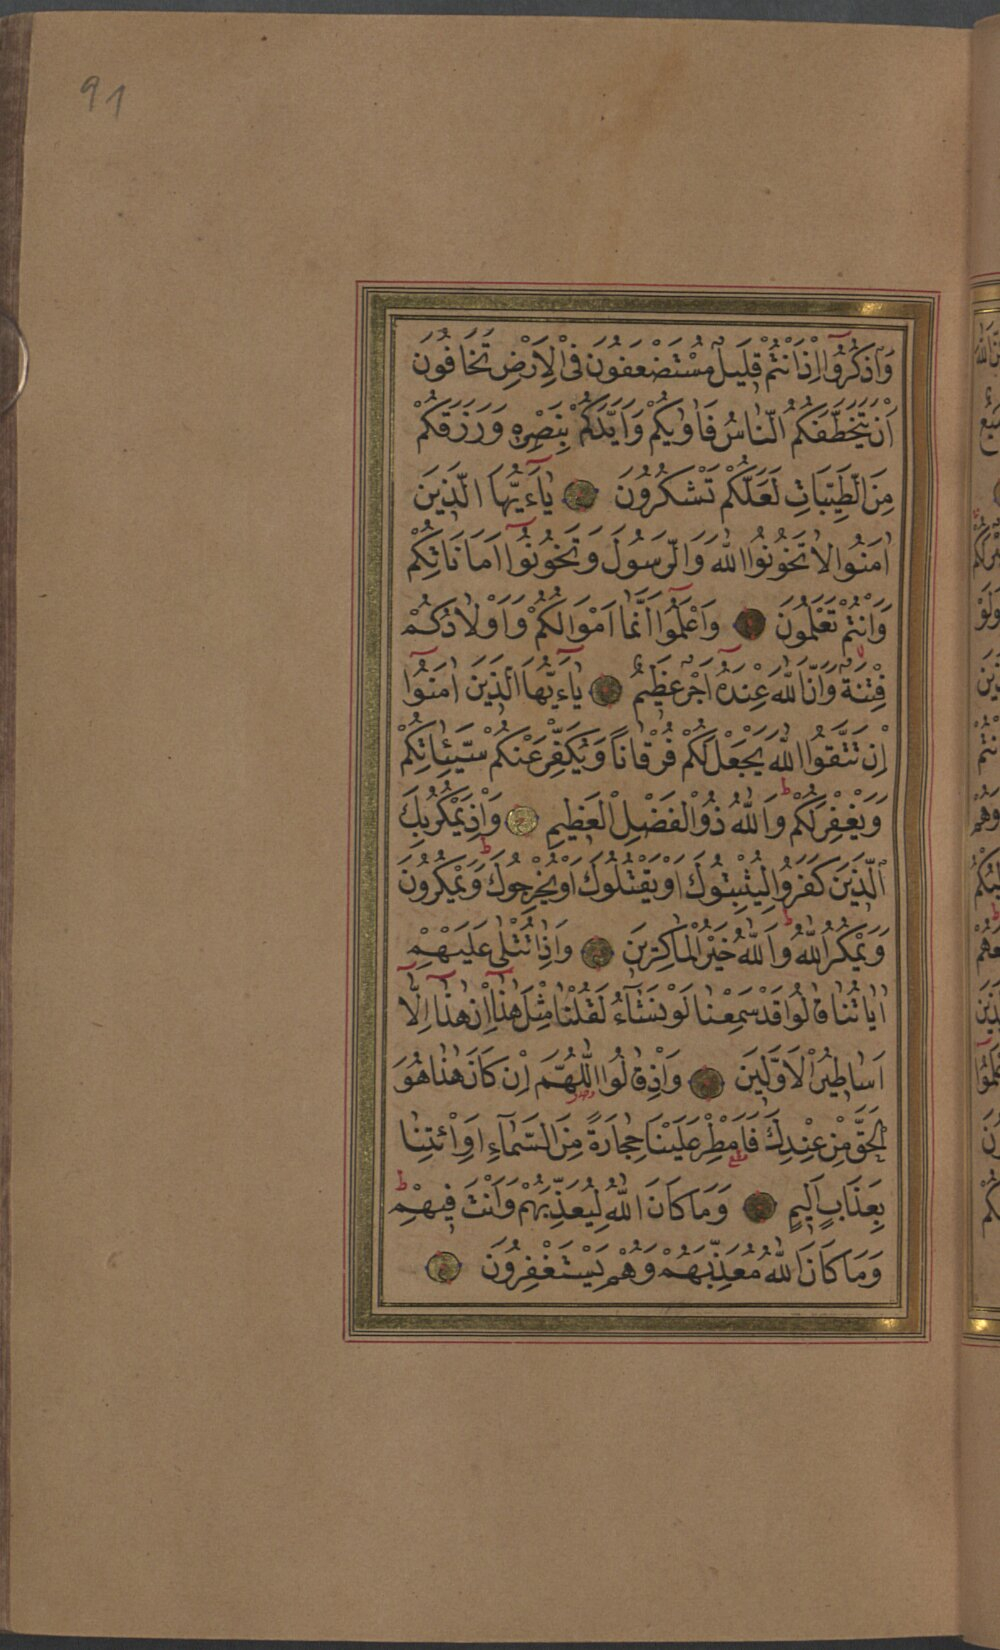 91
وَاذْكُرُوٓا اِذْ اَنْتُمْ قَلِيلٌ مُسْتَضْعَفُونَ فِي الْاَرْضِ تَخَافُونَ
اَنْ يَتَخَطَّفَكُمُ النَّاسُ فَاٰوٰيكُمْ وَاَيَّدَكُمْ بِنَصْرِهِ وَرَزَقَكُمْ
مِنَ الطَّيِّبَاتِ لَعَلَّكُمْ تَشْكُرُونَ يٰٓاَيُّهَا الَّذِينَ
اٰمَنُوا لَا تَخُونُوا اللّٰهَ وَالرَّسُولَ وَتَخُونُوٓا اَمَانَاتِكُمْ
وَاَنْتُمْ تَعْلَمُونَ وَاعْلَمُوٓا اَنَّمَٓا اَمْوَالُكُمْ وَاَوْلَادُكُمْ
فِتْنَةٌ وَاَنَّ اللّٰهَ عِنْدَهُٓ اَجْرٌ عَظِيمٌ يٰٓاَيُّهَا الَّذِينَ اٰمَنُوٓا
اِنْ تَتَّقُوا اللّٰهَ يَجْعَلْ لَكُمْ فُرْقَانًا وَيُكَفِّرْ عَنْكُمْ سَيِّئَاتِكُمْ
وَيَغْفِرْ لَكُمْ ط وَاللّٰهُ ذُو الْفَضْلِ الْعَظِيمِ وَاِذْ يَمْكُرُ بِكَ
الَّذِينَ كَفَرُوا لِيُثْبِتُوكَ اَوْ يَقْتُلُوكَ اَوْ يُخْرِجُوكَ ط وَيَمْكُرُونَ
وَيَمْكُرُ اللّٰهُ ط وَاللّٰهُ خَيْرُ الْمَاكِرِينَ وَاِذَا تُتْلٰى عَلَيْهِمْ
اٰيَاتُنَا قَالُوا قَدْ سَمِعْنَا لَوْ نَشَٓاءُ لَقُلْنَا مِثْلَ هٰذَٓا اِنْ هٰذَٓا اِلَّٓا
اَسَاطِيرُ الْاَوَّلِينَ وَاِذْ قَالُوا اللّٰهُمَّ اِنْ كَانَ هٰذَا هُوَ
الْحَقَّ مِنْ عِنْدِكَ فَاَمْطِرْ عَلَيْنَا حِجَارَةً مِنَ السَّمَٓاءِ اَوِ ائْتِنَا
بِعَذَابٍ اَلِيمٍ وَمَا كَانَ اللّٰهُ لِيُعَذِّبَهُمْ وَاَنْتَ فِيهِمْ ط
وَمَا كَانَ اللّٰهُ مُعَذِّبَهُمْ وَهُمْ يَسْتَغْفِرُونَ